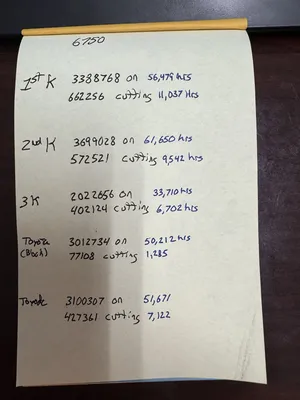 6750
1st K 3388768 on 56,479 hrs
662256 cutting 11,037 Hrs
2nd K 3699028 on 61,650 hrs
572521 cutting 9,542 hrs
3 K 2022656 on 33,710 hrs
402124 cutting 6,702 hrs
Toyoda 3012734 on 50,212 hrs
(Black) 77108 cutting 1,285
Toyoda 3100307 on 51,671
427361 cutting 7,122